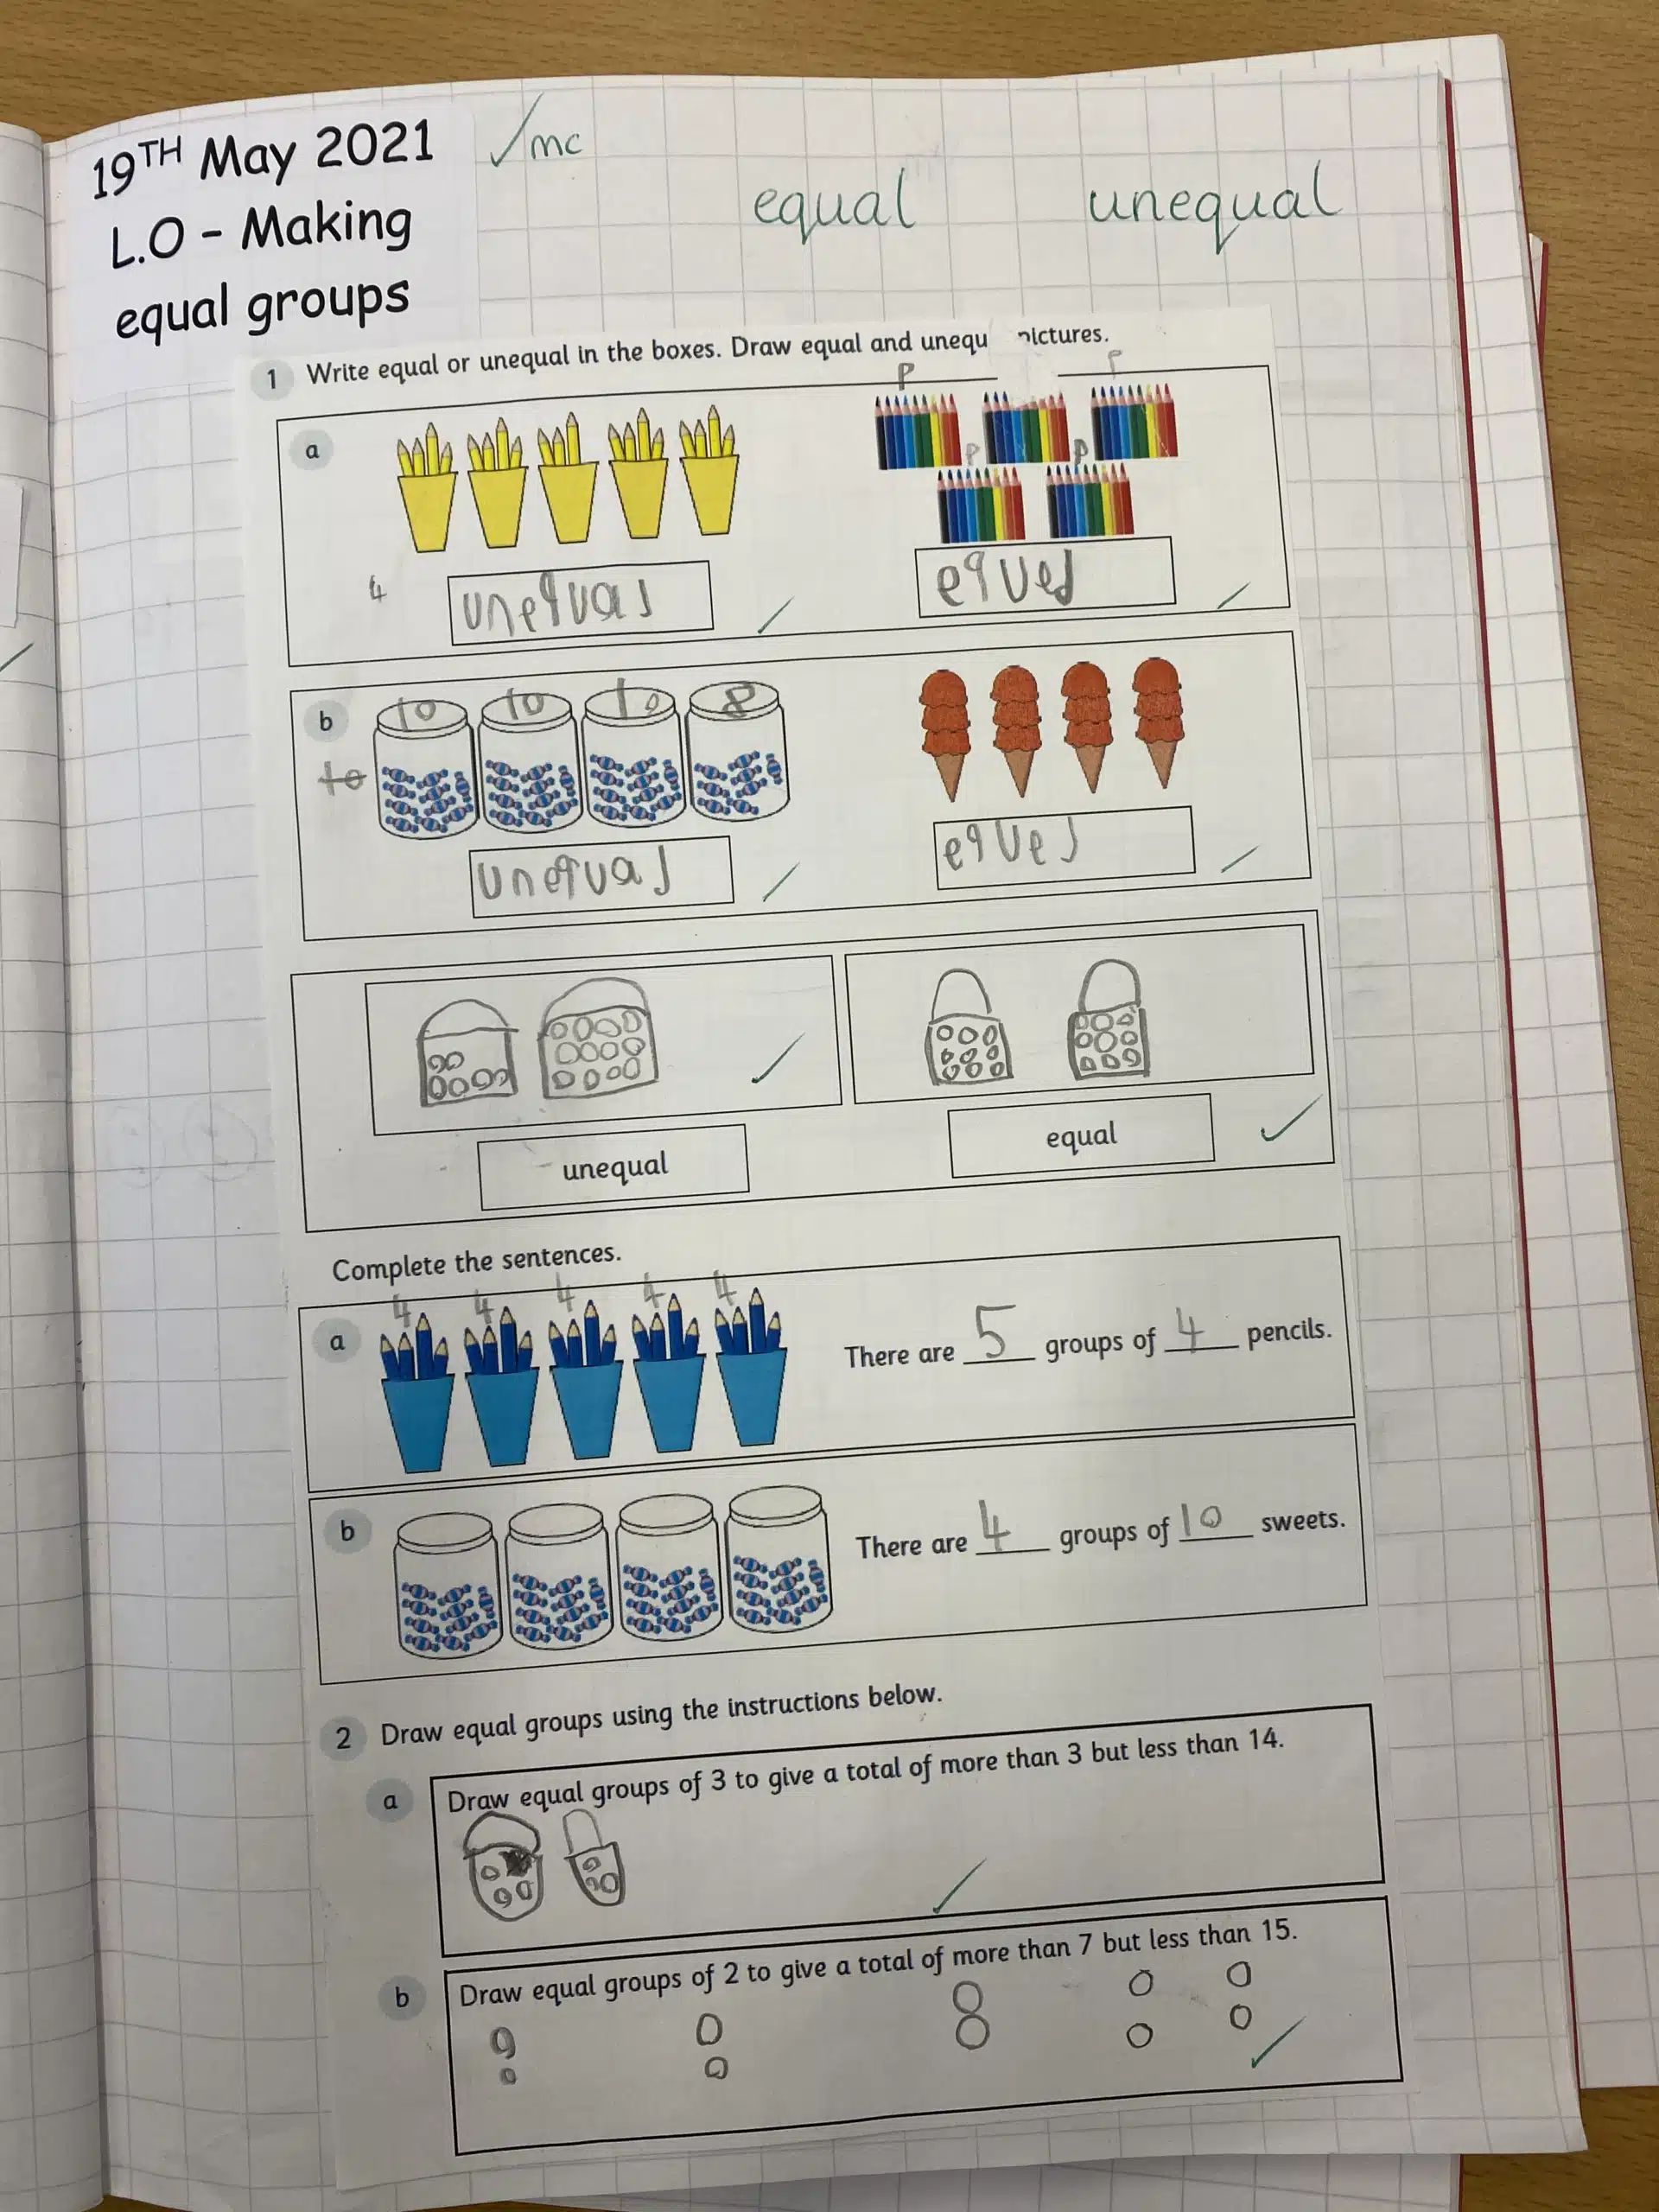 19TH May 2021
L.O - Making
equal groups
mc
equal unequal
1 Write equal or unequal in the boxes. Draw equal and unequ pictures.
P P
a
P P
4 unequal equel
b 10 10 10 8
10
unequal equel
unequal equal
Complete the sentences.
4 4 4 4 4
a There are 5 groups of 4 pencils.
b There are 4 groups of 10 sweets.
2 Draw equal groups using the instructions below.
a Draw equal groups of 3 to give a total of more than 3 but less than 14.
b Draw equal groups of 2 to give a total of more than 7 but less than 15.